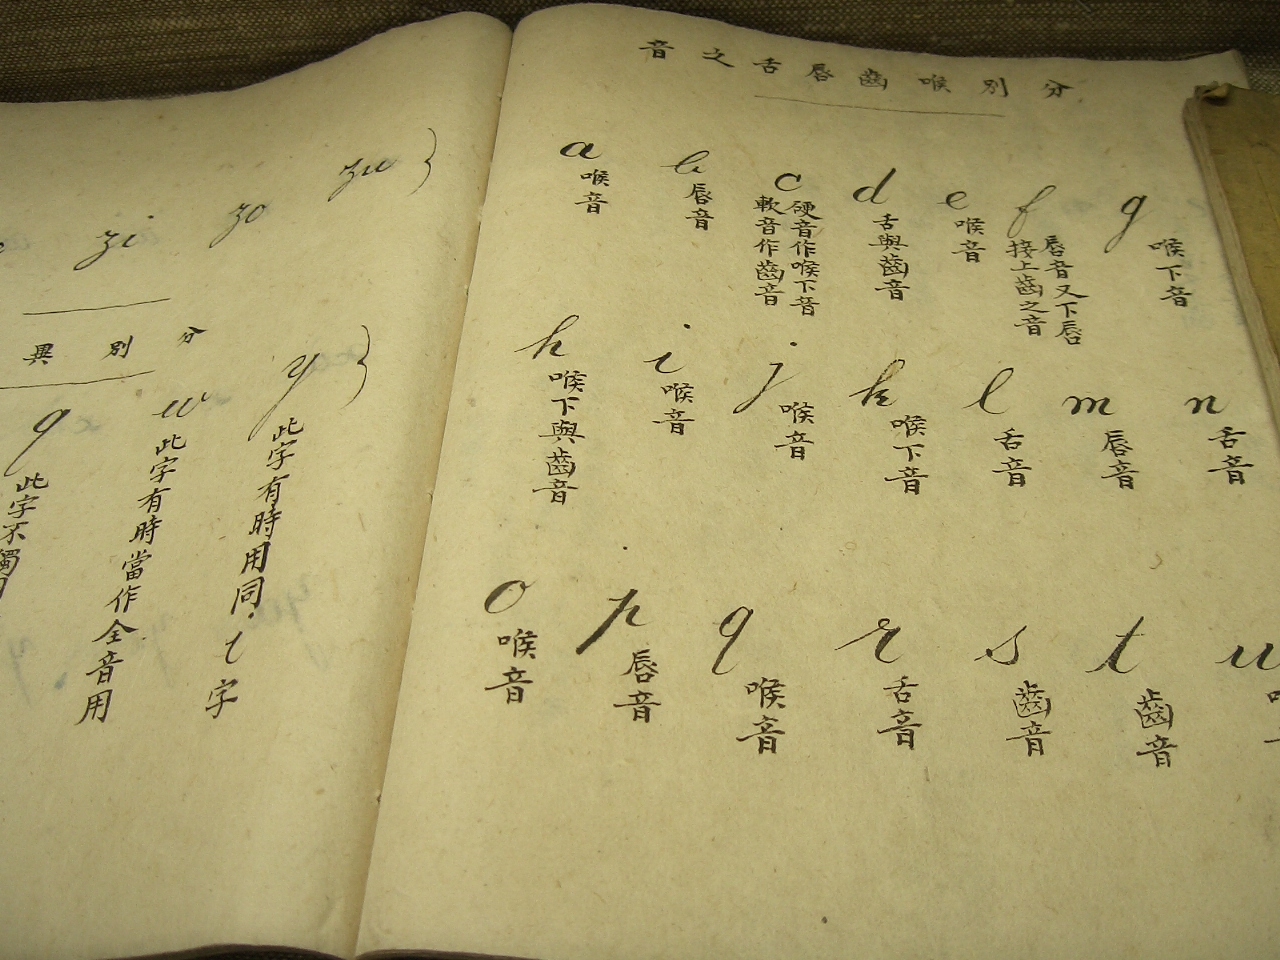 音之舌唇齒喉別分
a 喉音
b 唇音
c 硬音作喉下音 軟音作齒音
d 舌與齒音
e 喉音
f 唇音又下唇接上齒之音
g 喉下音
h 喉下與齒音
i 喉音
j 喉音
k 喉下音
l 舌音
m 唇音
n 舌音
o 喉音
p 唇音
q 喉音
r 舌音
s 齒音
t 齒音
u
zi zo zu }
異別分
q 此字不獨用
w 此字有時當作全音用
y } 此字有時用同i字